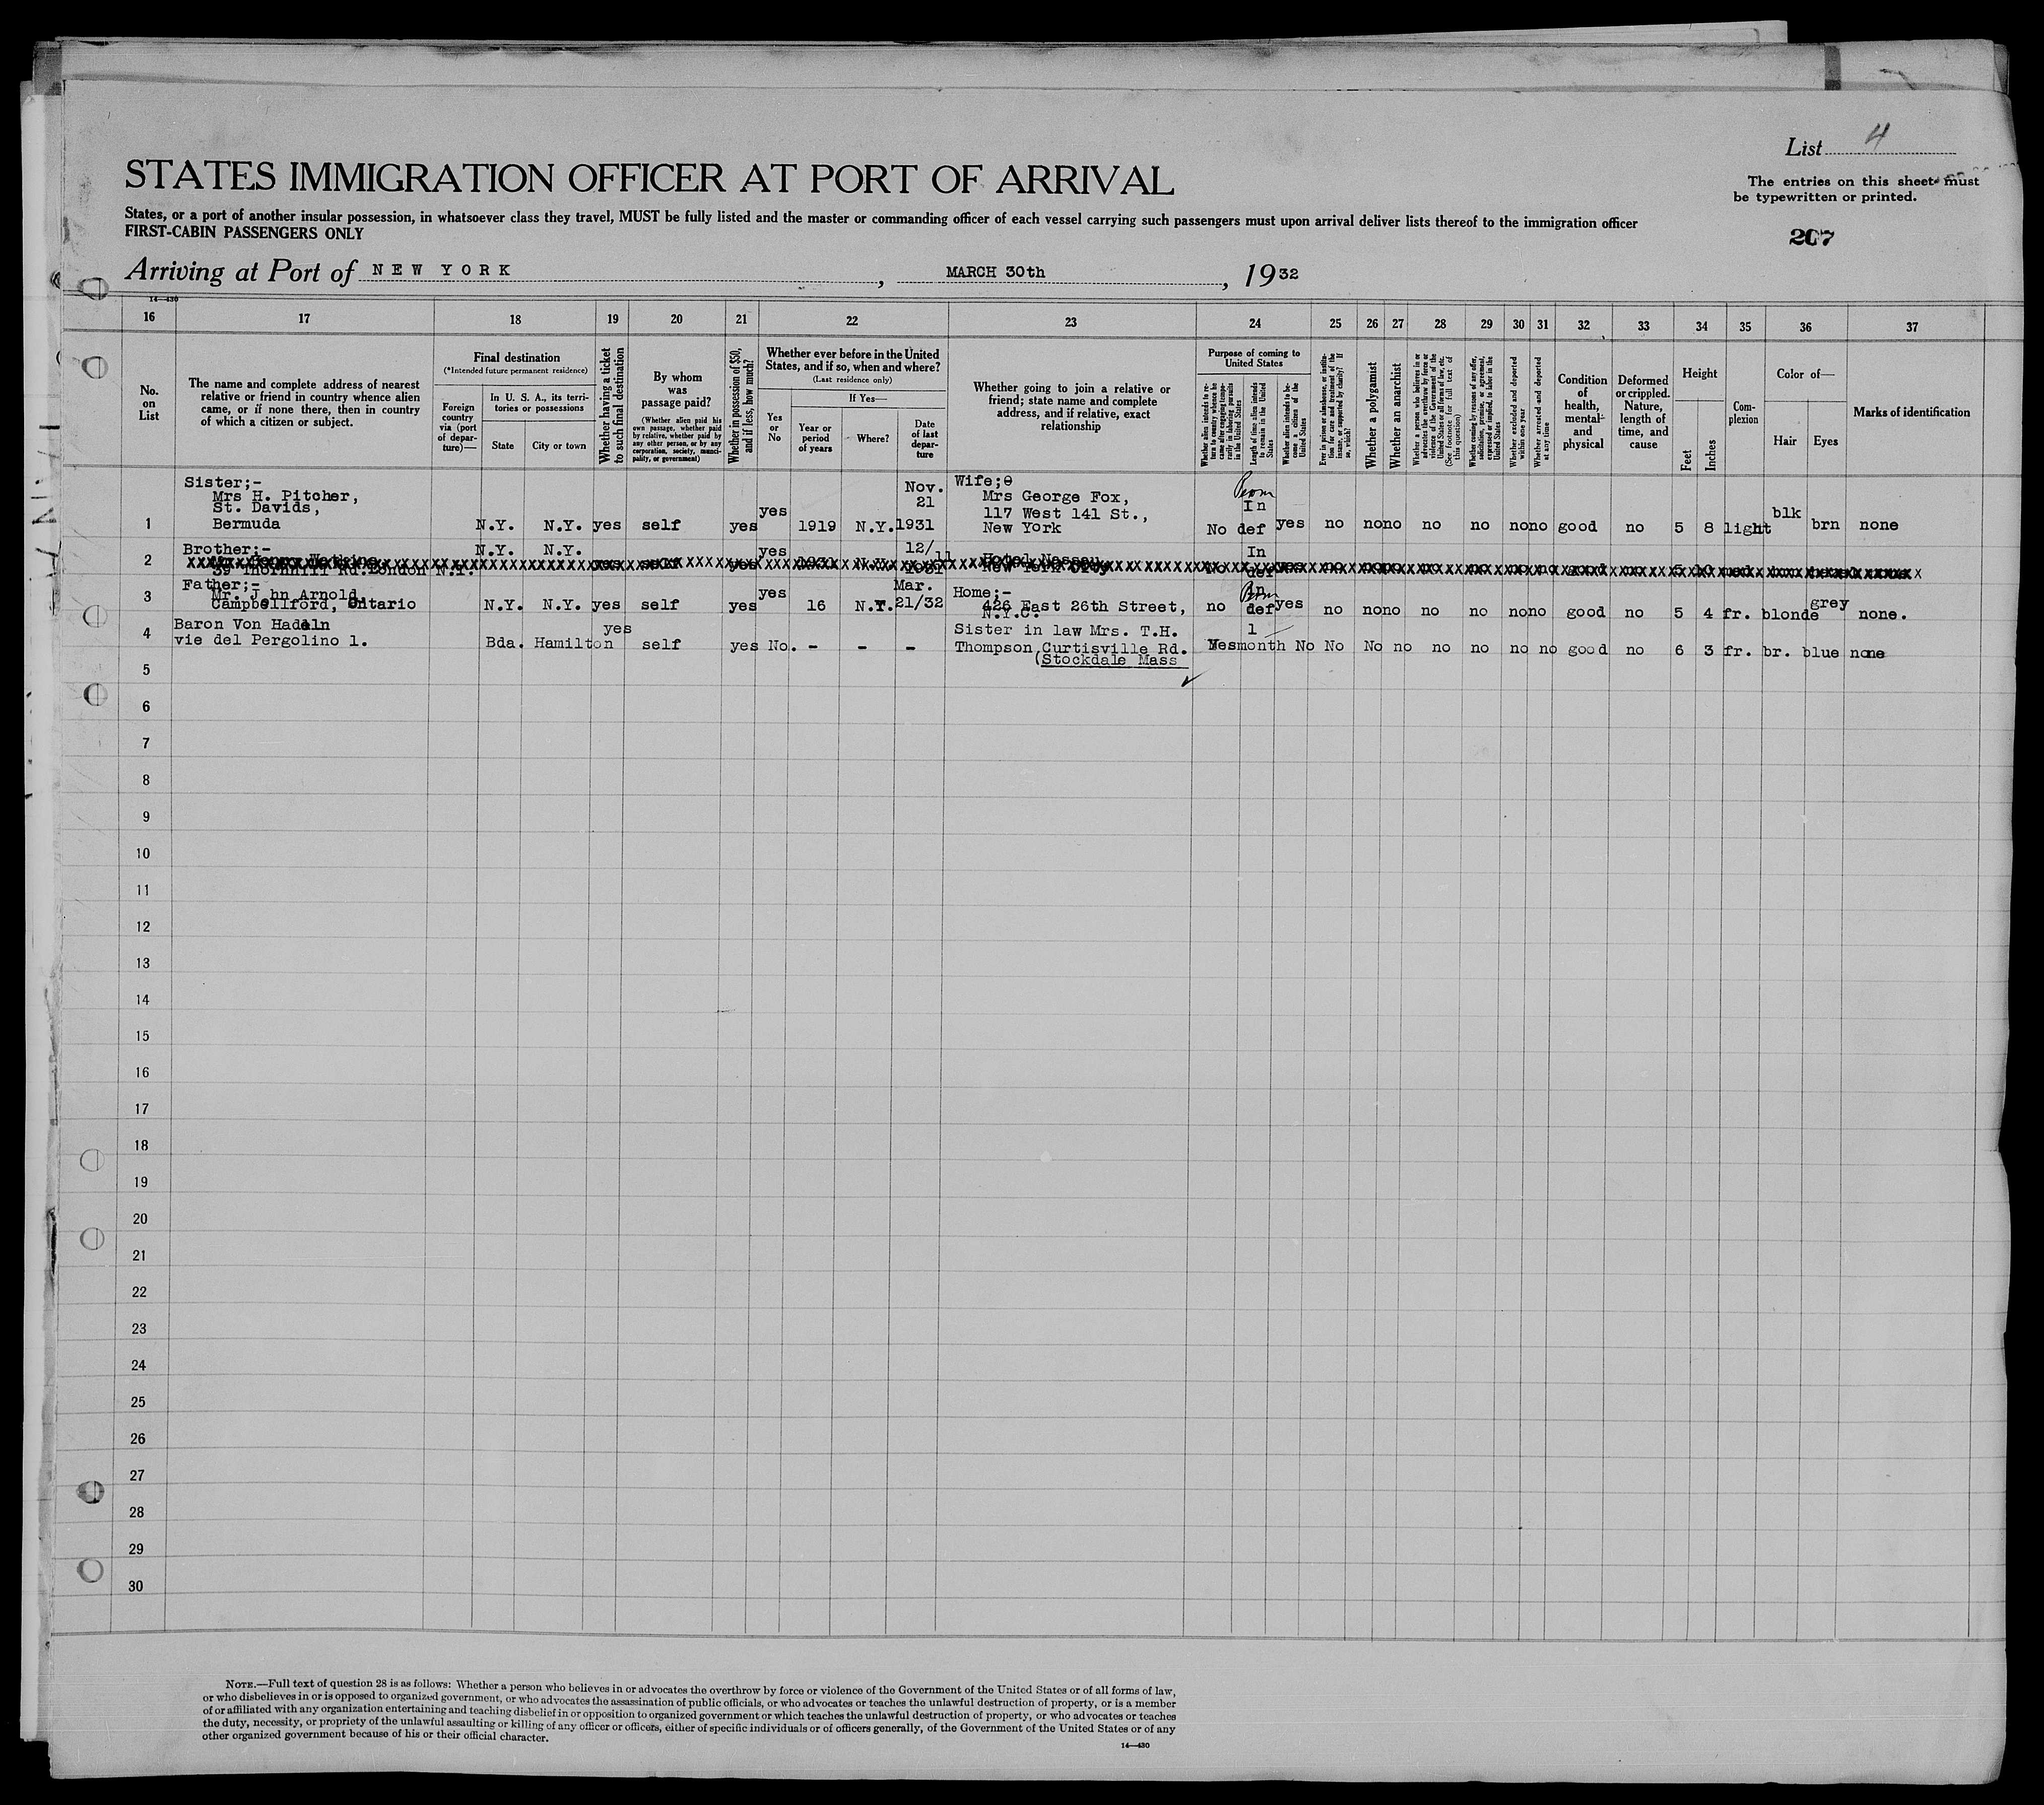 List 4
STATES IMMIGRATION OFFICER AT PORT OF ARRIVAL
The entries on this sheet must
be typewritten or printed.
States, or a port of another insular possession, in whatsoever class they travel, MUST be fully listed and the master or commanding officer of each vessel carrying such passengers must upon arrival deliver lists thereof to the immigration officer
FIRST-CABIN PASSENGERS ONLY
207
Arriving at Port of NEW YORK, MARCH 30th, 1932
14—430
16 17 18 19 20 21 22 23 24 25 26 27 28 29 30 31 32 33 34 35 36 37
No.
on
List
The name and complete address of nearest
relative or friend in country whence alien
came, or if none there, then in country
of which a citizen or subject.
Final destination
(*Intended future permanent residence)
Foreign
country
via (port
of depar-
ture)—
In U. S. A., its terri-
tories or possessions
State
City or town
Whether having a ticket
to such final destination
By whom
was
passage paid?
(Whether alien paid his
own passage, whether paid
by relative, whether paid by
any other person, or by any
corporation, society, munici-
pality, or government)
Whether in possession of $50,
and if less, how much?
Whether ever before in the United
States, and if so, when and where?
(Last residence only)
Yes
or
No
If Yes—
Year or
period
of years
Where?
Date
of last
depar-
ture
Whether going to join a relative or
friend; state name and complete
address, and if relative, exact
relationship
Purpose of coming to
United States
Whether alien intends to re-
turn to country whence he
came after engaging tempo-
rarily in laboring pursuits
in the United States
Length of time alien intends
to remain in the United
States
Whether alien intends to be-
come a citizen of the
United States
Ever in prison or almshouse, or institu-
tion for care and treatment of the
insane, or supported by charity? If
so, which?
Whether a polygamist
Whether an anarchist
Whether a person who believes in or
advocates the overthrow by force or
violence of the Government of the
United States or all forms of law, etc.
(See footnote for full text of
this question)
Whether coming by reason of any offer,
solicitation, promise, or agreement,
expressed or implied, to labor in the
United States
Whether excluded and deported
within one year
Whether arrested and deported
at any time
Condition
of
health,
mental
and
physical
Deformed
or crippled.
Nature,
length of
time, and
cause
Height
Feet
Inches
Com-
plexion
Color of—
Hair
Eyes
Marks of identification
Sister;-
Mrs H. Pitcher,
St. Davids,
1 Bermuda N.Y. N.Y. yes self yes yes 1919 N.Y. Nov. 21 1931
Wife;
Mrs George Fox,
117 West 141 St.,
New York
No Perm In def yes no no no no no no no good no 5 8 light blk brn none
2 Brother;- N.Y. N.Y. yes 12/11 In
39 Thornhill Rd. London N.1. 1931 N.Y. 1931 Hotel Nassau New York City
Father;-
3 Mr. J hn Arnold,
Campbellford, Ontario N.Y. N.Y. yes self yes yes 16 N.Y. Mar. 21/32
Home;-
426 East 26th Street,
N.Y.C.
no In Perm def yes no no no no no no no good no 5 4 fr. blonde grey none.
4 Baron Von Hadeln
vie del Pergolino 1. Bda. Hamilton yes self yes No. - - -
Sister in law Mrs. T.H.
Thompson Curtisville Rd.
(Stockdale Mass
Yes 1 month No No No no no no no no good no 6 3 fr. br. blue none
5
6
7
8
9
10
11
12
13
14
15
16
17
18
19
20
21
22
23
24
25
26
27
28
29
30
NOTE.—Full text of question 28 is as follows: Whether a person who believes in or advocates the overthrow by force or violence of the Government of the United States or of all forms of law,
or who disbelieves in or is opposed to organized government, or who advocates the assassination of public officials, or who advocates or teaches the unlawful destruction of property, or is a member
of or affiliated with any organization entertaining and teaching disbelief in or opposition to organized government or which teaches the unlawful destruction of property, or who advocates or teaches
the duty, necessity, or propriety of the unlawful assaulting or killing of any officer or officers, either of specific individuals or of officers generally, of the Government of the United States or of any
other organized government because of his or their official character.
14—430